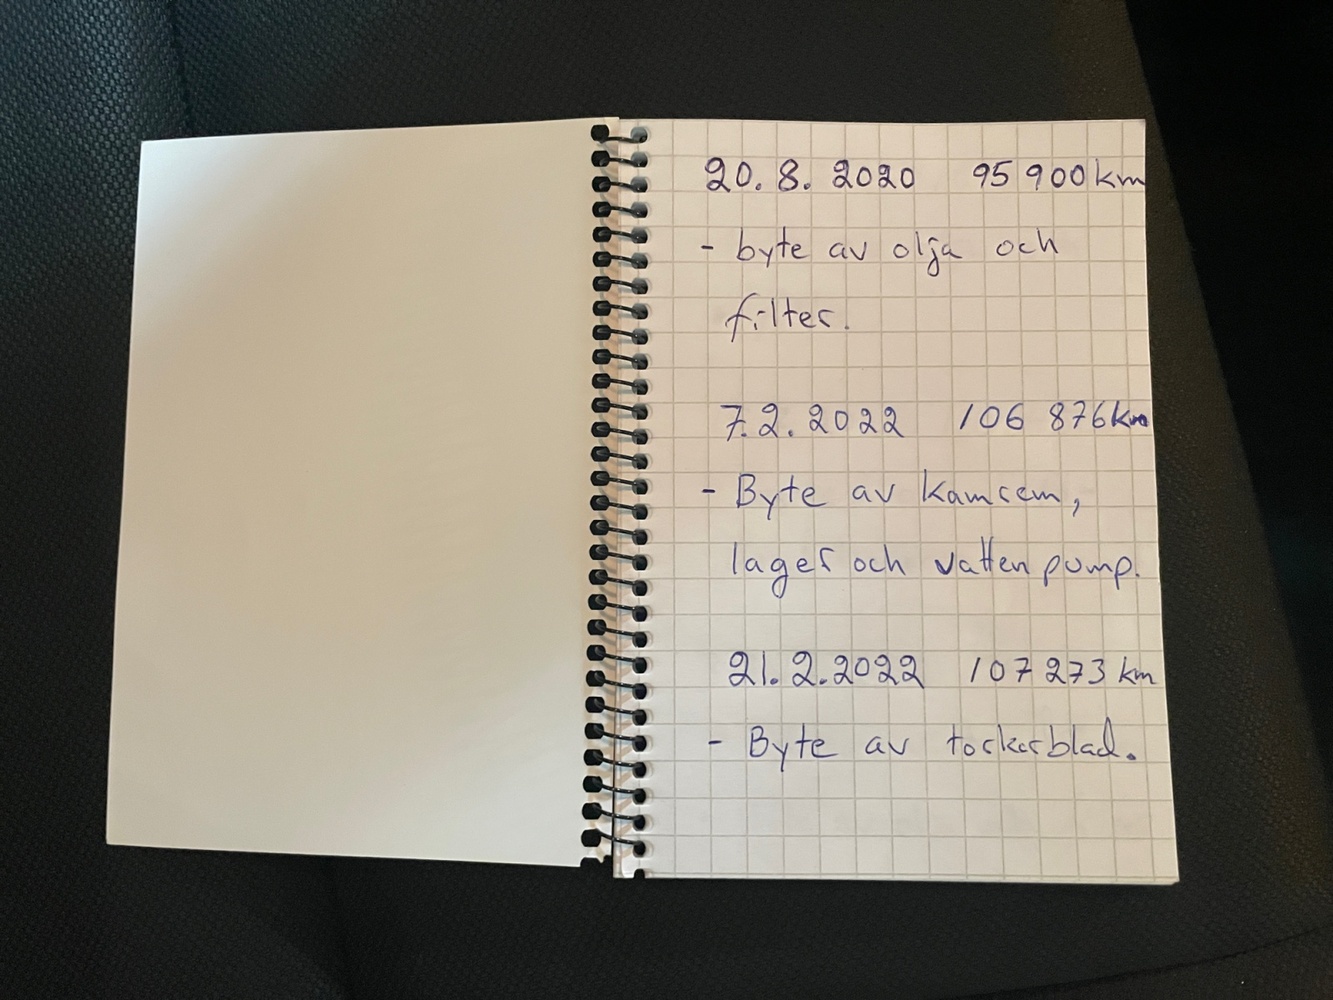 20. 8. 2020 95 900 km
- byte av olja och
filter.
7.2.2022 106 876 km
- Byte av kamrem,
lager och vattenpump.
21.2.2022 107 273 km
- Byte av torkarblad.